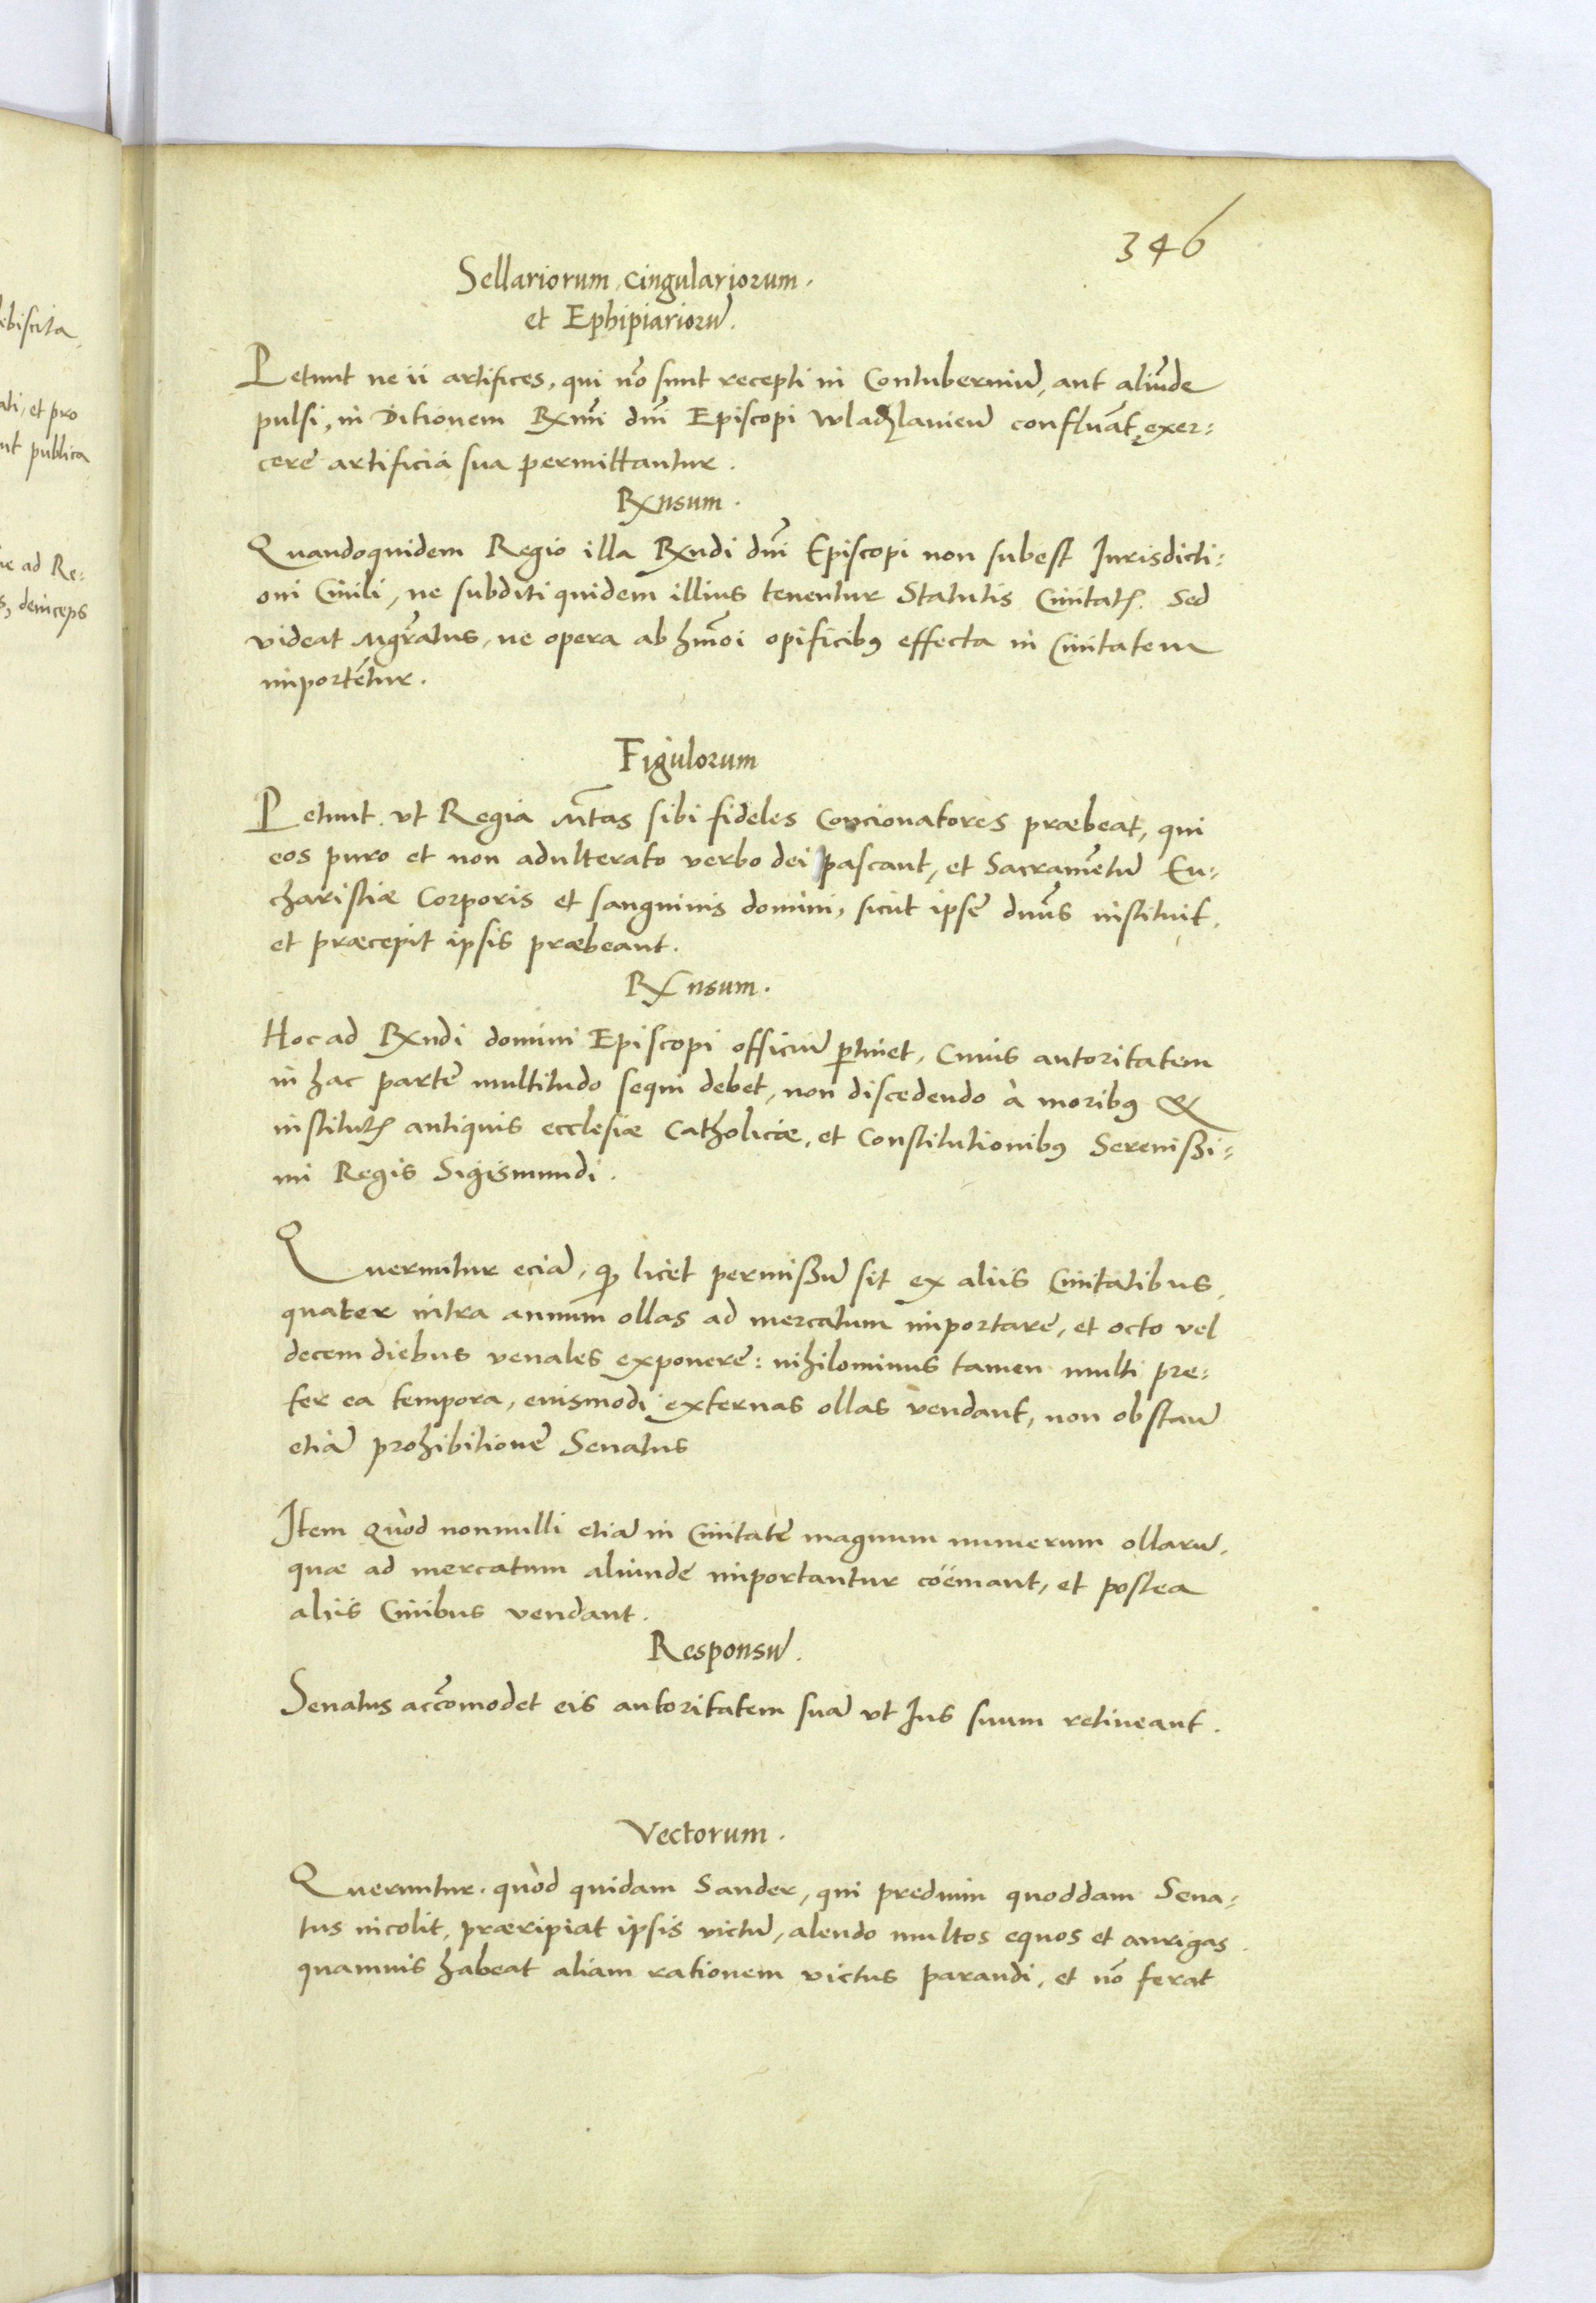 346
Sellariorum, cingulariorum.
et Ephipiariorũ.
Petunt ne ii artifices, qui nõ sunt recepti in Contuberniũ, aut aliũde
pulsi, in Ditionem Rxm̃i dñi Episcopi Wladzlavieñ confluãt, exer:
cere artificia sua permittantur.
Rxnsum.
Quandoquidem Regio illa Rxndi dñi Episcopi non subest Iurisdicti:
oni Ciuili, ne subditi quidem illius tenentur Statutis Ciuitatꝭ. Sed
videat Mgr̃atus, ne opera ab hm̃oi opificibꝰ effecta in Ciuitatem
importẽtur.
Figulorum
Petunt vt Regia M̃tas sibi fideles Concionatores præbeat, qui
eos puro et non adulterato verbo dei pascant, et Sacramẽtũ Eu:
charistiæ Corporis et sanguinis domini, sicut ipse dñus instituit,
et præcepit ipsis præbeant.
Rxnsum.
Hoc ad Rxndi domini Episcopi officiũ ꝑtinet, Cuius autoritatem
in hac parte multitudo sequi debet, non discedendo à moribꝰ &
institutꝭ antiquis ecclesiæ Catholicæ, et Constitutionibꝰ Serenißi:
mi Regis Sigismundi.
Queruntur eciã, ꝙ licet permißũ sit ex aliis Ciuitatibus,
quater intra annum ollas ad mercatum importare, et octo vel
decem diebus venales exponere: nihilominus tamen multi præ:
ter ea tempora, eiusmodi externas ollas vendant, non obstañ
etiã prohibitione Senatus
Item quòd nonnulli etiã in Ciuitate magnum numerum ollarũ,
quæ ad mercatum aliunde importantur coëmant, et postea
aliis Ciuibus vendant.
Responsũ.
Senatus accõmodet eis autoritatem suã vt Ius suum retineant.
Vectorum.
Queruntur, quòd quidam Sander, qui predium quoddam Sena:
tus incolit, præripiat ipsis victũ, alendo multos equos et aurigas
quamuis habeat aliam rationem victus parandi, et nõ ferat
ebiscita
ati, et pro
nt publica
ue ad Re:
s, deinceps